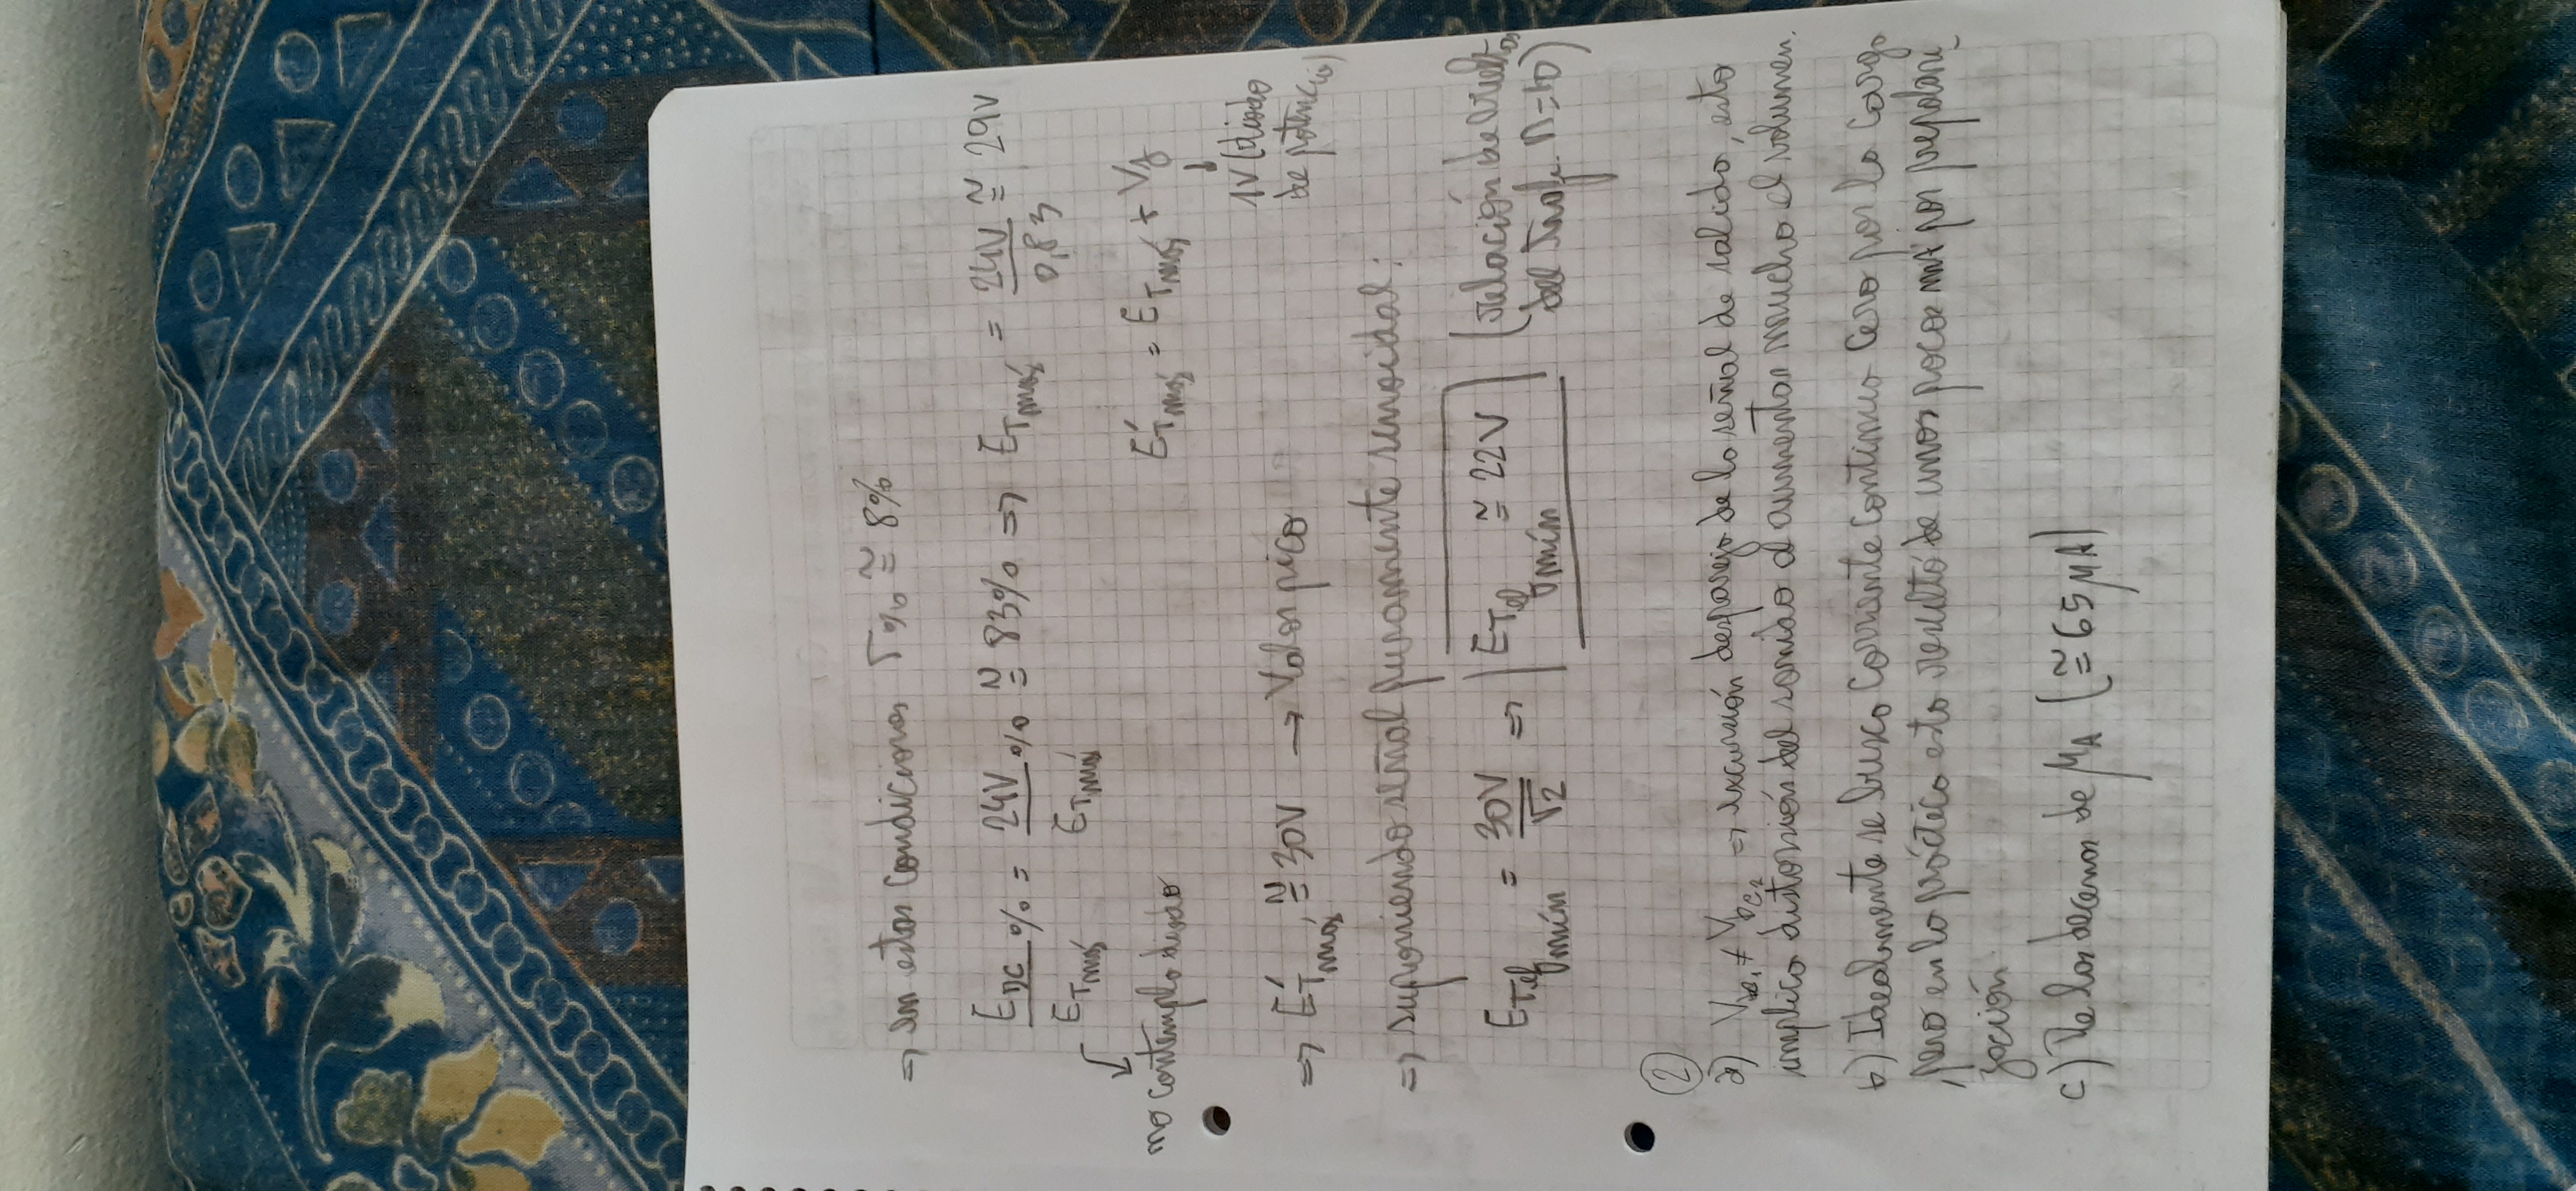 => en estas condiciones r% ≅ 8%
E_DC/E_Tmáx % = 24V/E_Tmáx % ≅ 83% => E_Tmáx = 24V/0,83 ≅ 29V
no contempla diodo
E'_Tmáx = E_Tmáx + Vγ
1V (diodo de potencia)
=> E'_Tmáx ≅ 30V → Valor pico
=> suponiendo señal puramente senoidal:
E_Tef mín = 30V/√2 => E_Tef mín ≅ 22V (relación de vueltas
del trafo. n=10)
2
a) Vbc1 ≠ Vbc2 => excursión despareja de la señal de salida, esto
implica distorsión del sonido al aumentar mucho el volumen.
b) Idealmente se busca corriente continua cero por la carga
, pero en la práctica esta resulta de unos pocos mA por prepolari-
zación.
c) De las decenas de μA (≅ 65 μA)